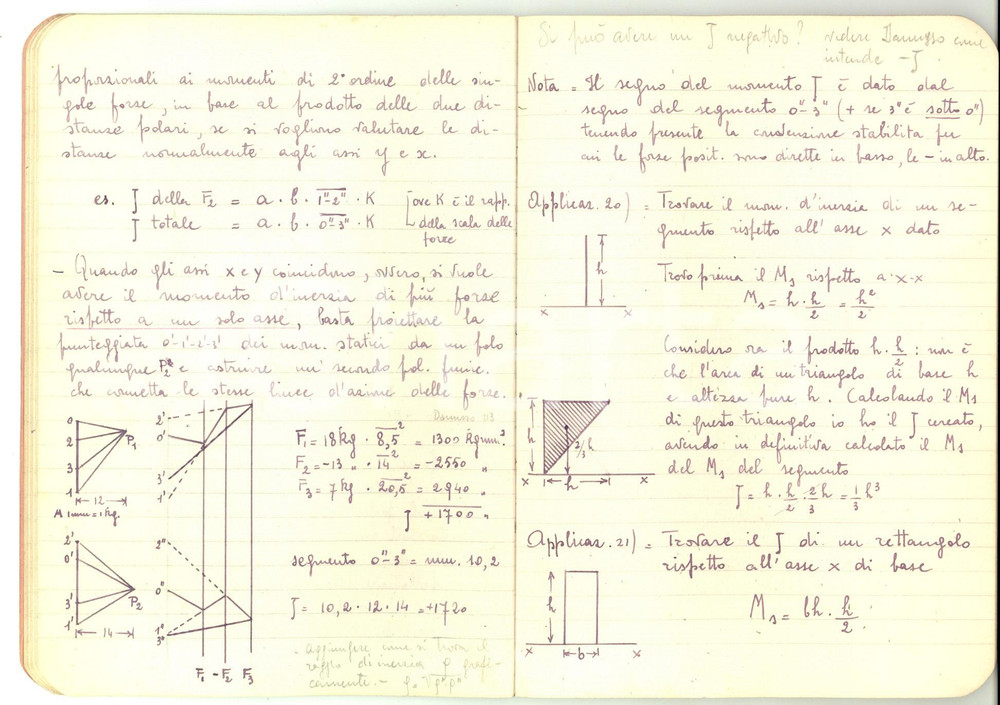 proporzionali ai momenti di 2° ordine delle sin-
gole forze, in base al prodotto delle due di-
stanze polari, se si vogliono valutare le di-
stanze normalmente agli assi y e x.
es. J della F₂ = a · b · 1"-2" · K
J totale = a · b · 0"-3" · K
[ove K è il rapp.
della scala delle
forze
- Quando gli assi x e y coincidono, ovvero, si vuole
avere il momento d'inerzia di più forze
rispetto a un solo asse, basta proiettare la
punteggiata 0'-1'-2'-3' dei mom. statici da un polo
qualunque P₂ e costruire un secondo pol. funic.
che connetta le stesse linee d'azione delle forze.
Danusso 113
0
2
3
1
P₁
12
1mm = 1 kg.
2'
0'
3'
1'
F₁ = 18 kg · 8,5² = 1300 kgmm²
F₂ = -13 " · 14² = -2550 "
F₃ = 7 kg · 20,5² = 2940 "
J +1700 "
2'
0'
3'
1'
P₂
14
2"
0"
1"
3"
segmento 0"-3" = mm. 10,2
J = 10,2 · 12 · 14 = +1720
F₁ - F₂ F₃
- aggiungere come si trova il
raggio di inerzia ρ grafi-
camente. -
Si può avere un J negativo? vedere Danusso come
intende -J.
Nota = Il segno del momento J è dato dal
segno del segmento 0"-3" (+ se 3" è sotto 0")
tenendo presente la convenzione stabilita per
cui le forze posit. sono dirette in basso, le - in alto.
Applicaz. 20) = Trovare il mom. d'inerzia di un se-
gmento rispetto all'asse x dato
h
x x
Trovo prima il Ms rispetto a x-x
Ms = h · h/2 = h²/2
Considero ora il prodotto h · h/2 : non è
che l'area di un triangolo di base h
e altezza pure h. Calcolando il Ms
di questo triangolo io ho il J cercato,
avendo in definitiva calcolato il Ms
del Ms del segmento
h
2/3 h
x h x
J = h · h/2 · 2/3 h = 1/3 h³
Applicaz. 21) = Trovare il J di un rettangolo
rispetto all'asse x di base
h
x b x
Ms = bh · h/2.